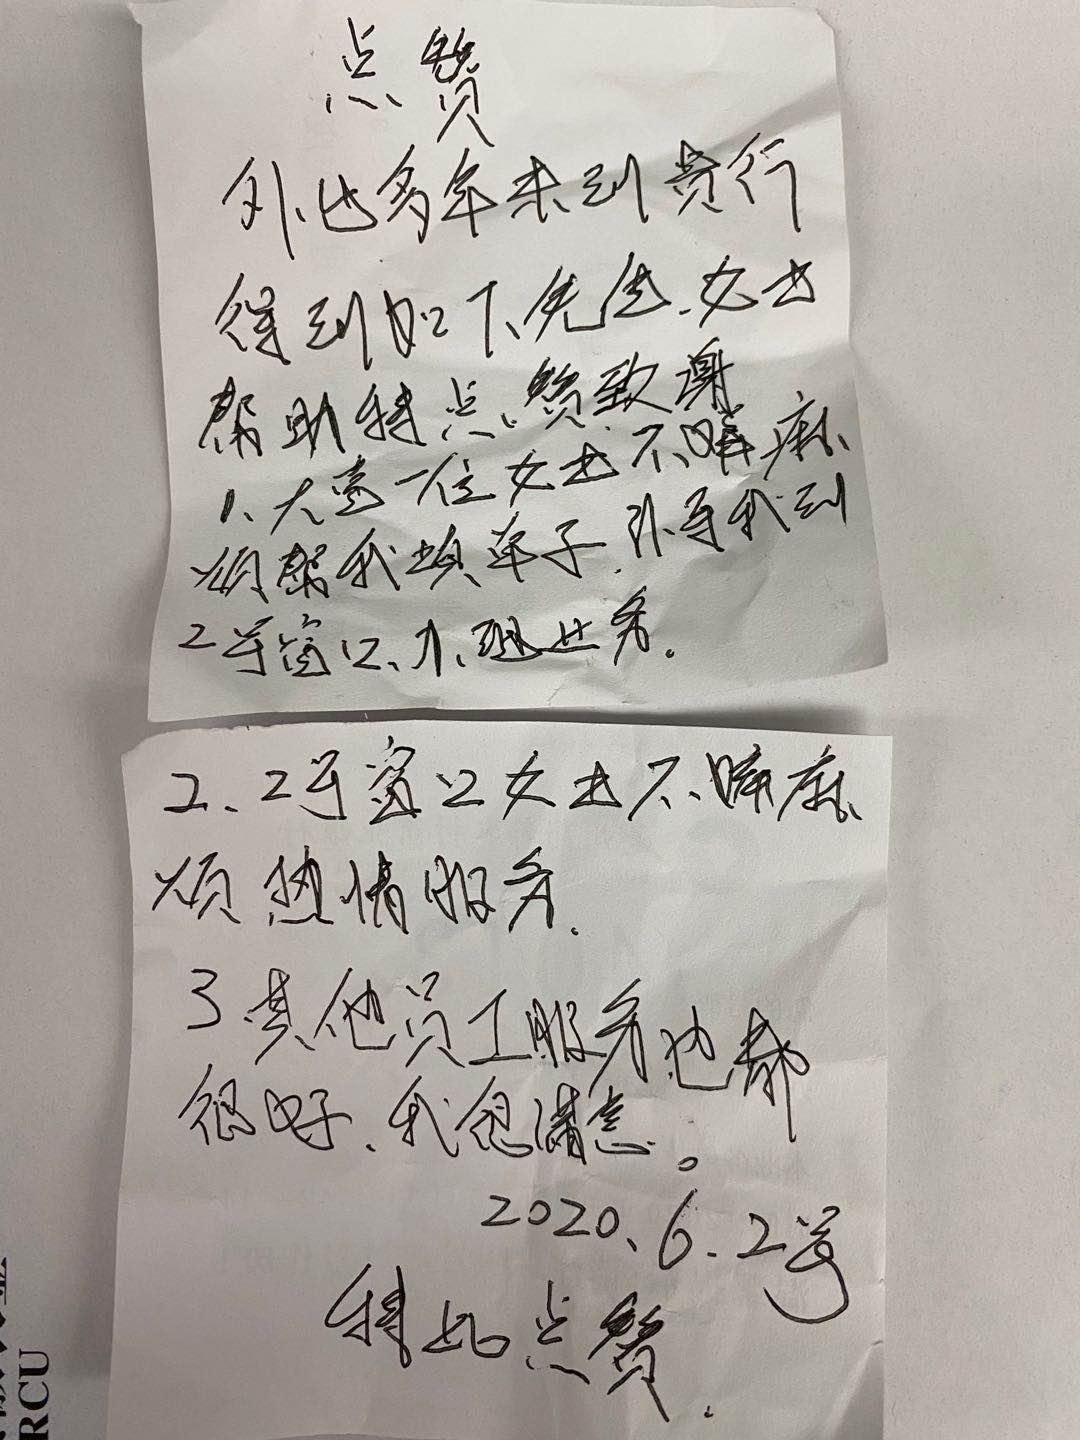 点赞
外出多年来到贵行
得到如下先生.女士
帮助特点赞致谢
1、大堂一位女士不嫌麻
烦帮我填单子.引导我到
2号窗口、办理业务.
2、2号窗口女士不嫌麻
烦热情服务.
3.其他员工服务也都
很好.我很满意。
2020.6.2号
特此点赞.
RCU